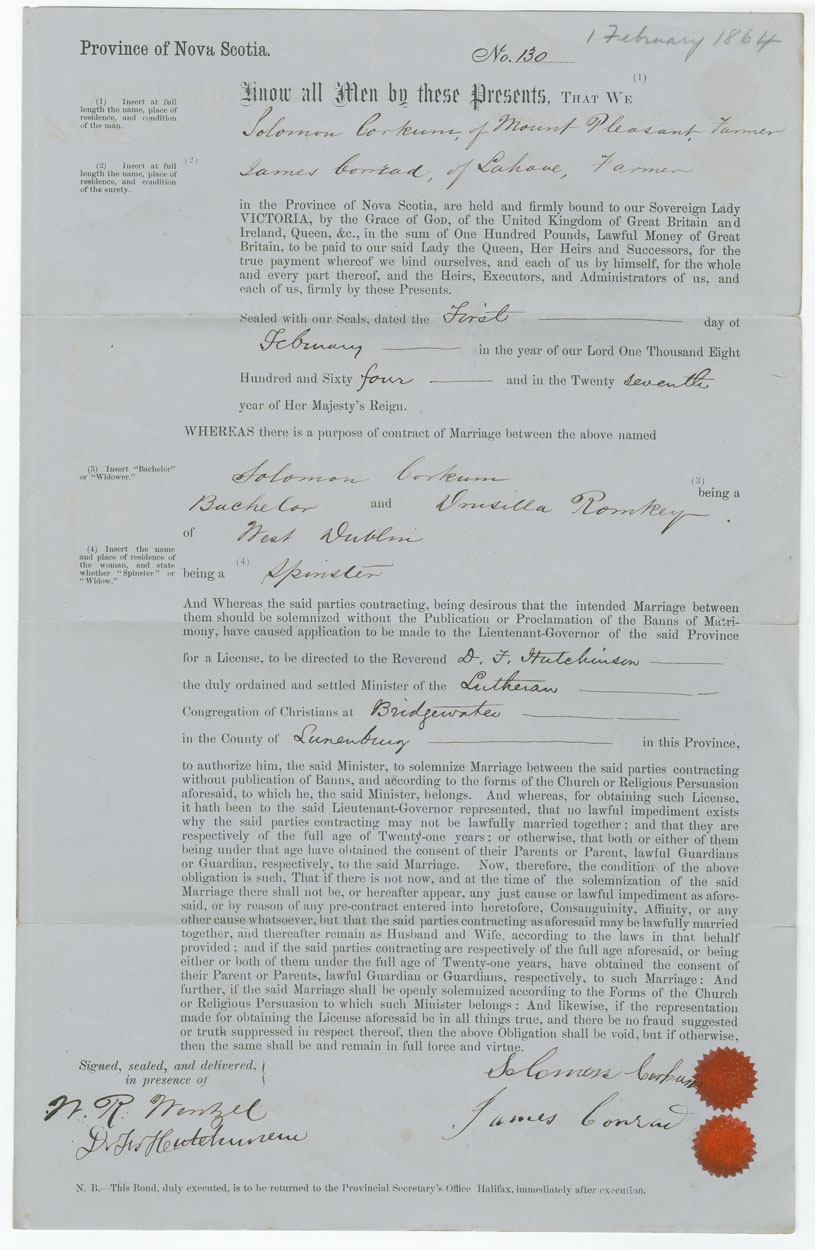 1 February 1864
Province of Nova Scotia.
No. 130
(1)
Know all Men by these Presents, THAT WE
(1) Insert at full
length the name, place of
residence, and condition
of the man.
Solomon Corkum, of Mount Pleasant, Farmer
(2) Insert at full
length the name, place of
residence, and condition
of the surety.
(2)
James Conrad, of Lahave, Farmer
in the Province of Nova Scotia, are held and firmly bound to our Sovereign Lady
VICTORIA, by the Grace of GOD, of the United Kingdom of Great Britain and
Ireland, Queen, &c., in the sum of One Hundred Pounds, Lawful Money of Great
Britain, to be paid to our said Lady the Queen, Her Heirs and Successors, for the
true payment whereof we bind ourselves, and each of us by himself, for the whole
and every part thereof, and the Heirs, Executors, and Administrators of us, and
each of us, firmly by these Presents.
Sealed with our Seals, dated the First day of
February in the year of our Lord One Thousand Eight
Hundred and Sixty four and in the Twenty seventh
year of Her Majesty's Reign.
WHEREAS there is a purpose of contract of Marriage between the above named
(3) Insert "Bachelor"
or "Widower."
Solomon Corkum (3) being a
Bachelor and Drusilla Romkey.
of West Dublin
(4) Insert the name
and place of residence of
the woman, and state
whether "Spinster" or
"Widow."
being a (4) Spinster
And Whereas the said parties contracting, being desirous that the intended Marriage between
them should be solemnized without the Publication or Proclamation of the Banns of Matri-
mony, have caused application to be made to the Lieutenant-Governor of the said Province
for a License, to be directed to the Reverend D. F. Hutchinson
the duly ordained and settled Minister of the Lutheran
Congregation of Christians at Bridgewater
in the County of Lunenburg in this Province,
to authorize him, the said Minister, to solemnize Marriage between the said parties contracting
without publication of Banns, and according to the forms of the Church or Religious Persuasion
aforesaid, to which he, the said Minister, belongs. And whereas, for obtaining such License,
it hath been to the said Lieutenant-Governor represented, that no lawful impediment exists
why the said parties contracting may not be lawfully married together; and that they are
respectively of the full age of Twenty-one years; or otherwise, that both or either of them
being under that age have obtained the consent of their Parents or Parent, lawful Guardians
or Guardian, respectively, to the said Marriage. Now, therefore, the condition of the above
obligation is such, That if there is not now, and at the time of the solemnization of the said
Marriage there shall not be, or hereafter appear, any just cause or lawful impediment as afore-
said, or by reason of any pre-contract entered into heretofore, Consanguinity, Affinity, or any
other cause whatsoever, but that the said parties contracting as aforesaid may be lawfully married
together, and thereafter remain as Husband and Wife, according to the laws in that behalf
provided; and if the said parties contracting are respectively of the full age aforesaid, or being
either or both of them under the full age of Twenty-one years, have obtained the consent of
their Parent or Parents, lawful Guardian or Guardians, respectively, to such Marriage: And
further, if the said Marriage shall be openly solemnized according to the Forms of the Church
or Religious Persuasion to which such Minister belongs: And likewise, if the representation
made for obtaining the License aforesaid be in all things true, and there be no fraud suggested
or truth suppressed in respect thereof, then the above Obligation shall be void, but if otherwise,
then the same shall be and remain in full force and virtue.
Signed, sealed, and delivered,
in presence of
Solomon Corkum
W. R. Wentzel
James Conrad
D. F. Hutchinson
N. B.—This Bond, duly executed, is to be returned to the Provincial Secretary's Office Halifax, immediately after execution.